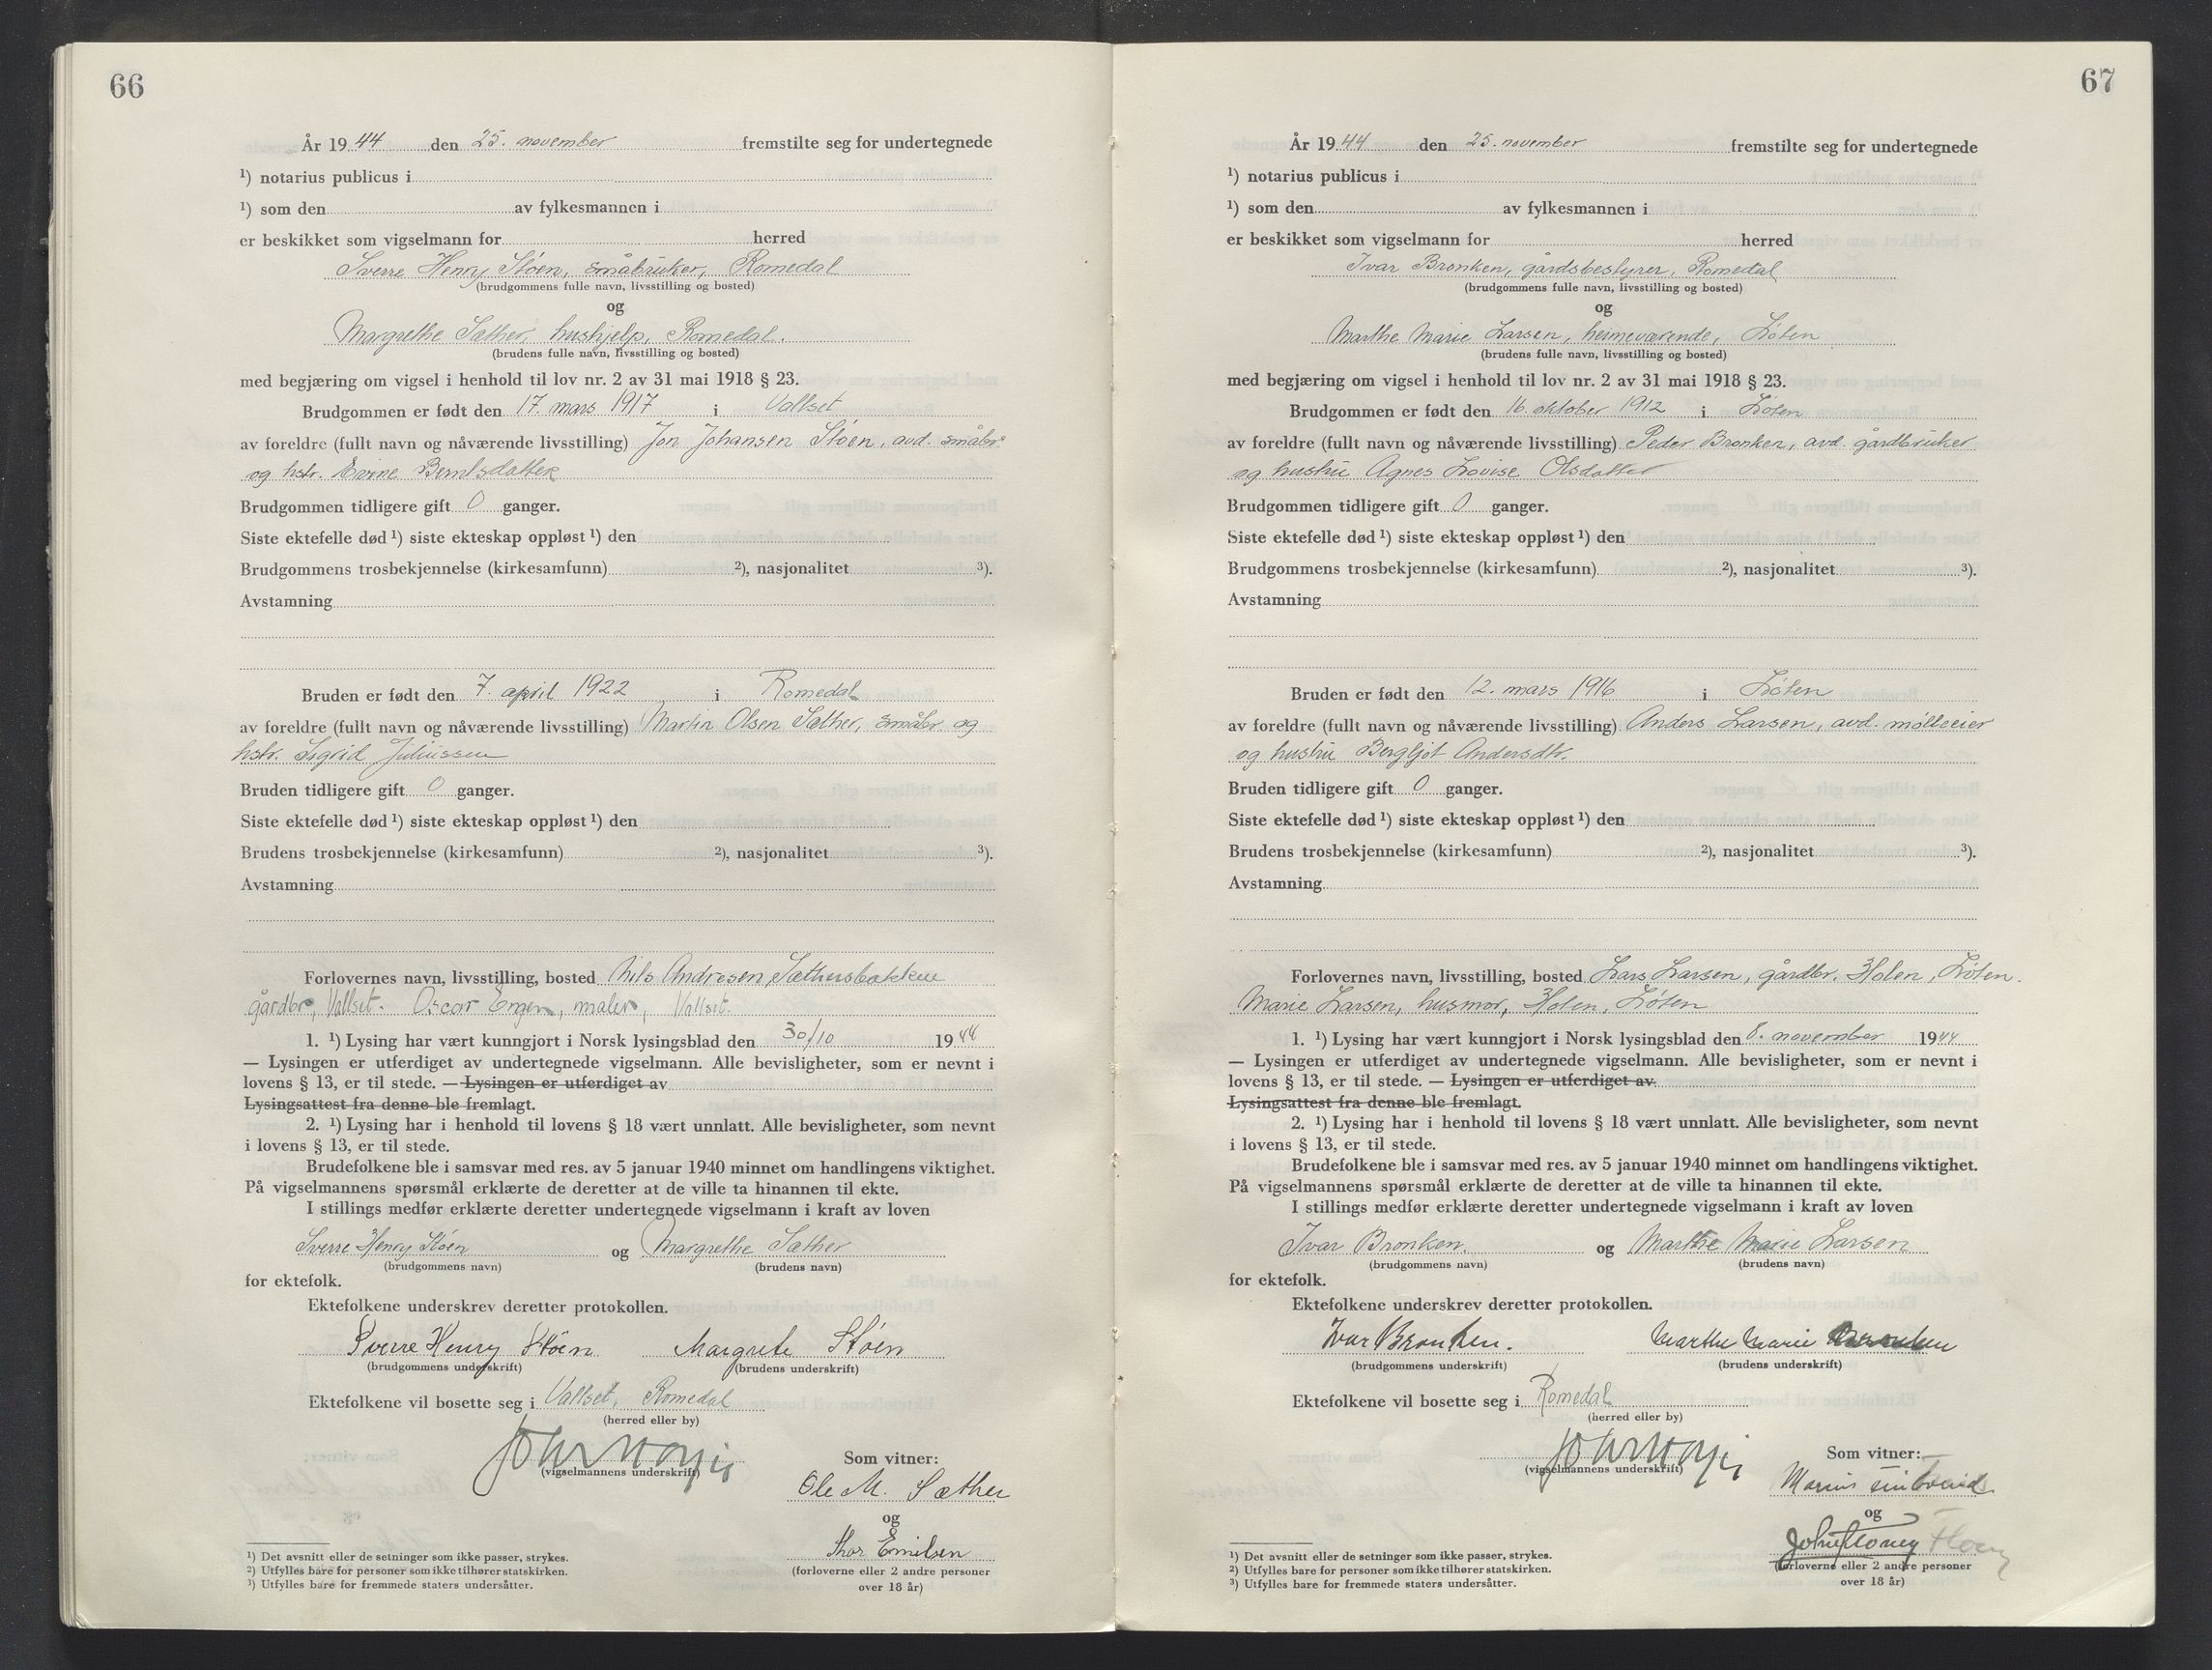 66
År 1944 den 25. november fremstilte seg for undertegnede
¹) notarius publicus i
¹) som den av fylkesmannen i
er beskikket som vigselmann for herred
Sverre Henry Støen, småbruker, Romedal
(brudgommens fulle navn, livsstilling og bosted)
og
Margrethe Sæther, hushjelp, Romedal.
(brudens fulle navn, livsstilling og bosted)
med begjæring om vigsel i henhold til lov nr. 2 av 31 mai 1918 § 23.
Brudgommen er født den 17. mars 1917 i Vallset
av foreldre (fullt navn og nåværende livsstilling) Jon Johansen Støen, avd. småbr.
og hstr. Evine Berntsdatter
Brudgommen tidligere gift 0 ganger.
Siste ektefelle død ¹) siste ekteskap oppløst ¹) den
Brudgommens trosbekjennelse (kirkesamfunn) ²), nasjonalitet ³).
Avstamning
Bruden er født den 7. april 1922 i Romedal
av foreldre (fullt navn og nåværende livsstilling) Martin Olsen Sæther, småbr. og
hstr. Sigrid Juliussen
Bruden tidligere gift 0 ganger.
Siste ektefelle død ¹) siste ekteskap oppløst ¹) den
Brudens trosbekjennelse (kirkesamfunn) ²), nasjonalitet ³).
Avstamning
Forlovernes navn, livsstilling, bosted Nils Andresen Sæthersbakken
gårdbr., Vallset. Oscar Engen, maler, Vallset.
1. ¹) Lysing har vært kunngjort i Norsk lysingsblad den 30/10 1944
— Lysingen er utferdiget av undertegnede vigselmann. Alle bevisligheter, som er nevnt i
lovens § 13, er til stede. — Lysingen er utferdiget av
Lysingsattest fra denne ble fremlagt.
2. ¹) Lysing har i henhold til lovens § 18 vært unnlatt. Alle bevisligheter, som nevnt
i lovens § 13, er til stede.
Brudefolkene ble i samsvar med res. av 5 januar 1940 minnet om handlingens viktighet.
På vigselmannens spørsmål erklærte de deretter at de ville ta hinannen til ekte.
I stillings medfør erklærte deretter undertegnede vigselmann i kraft av loven
Sverre Henry Støen og Margrethe Sæther
(brudgommens navn) (brudens navn)
for ektefolk.
Ektefolkene underskrev deretter protokollen.
Sverre Henry Støen Margrete Støen
(brudgommens underskrift) (brudens underskrift)
Ektefolkene vil bosette seg i Vallset, Romedal
(herred eller by)
(vigselmannens underskrift)
Som vitner:
Ole M. Sæther
og
Thor Emilsen
(forloverne eller 2 andre personer
over 18 år)
¹) Det avsnitt eller de setninger som ikke passer, strykes.
²) Utfylles bare for personer som ikke tilhører statskirken.
³) Utfylles bare for fremmede staters undersåtter.
67
År 1944 den 25. november fremstilte seg for undertegnede
¹) notarius publicus i
¹) som den av fylkesmannen i
er beskikket som vigselmann for herred
Ivar Bronken, gårdsbestyrer, Romedal
(brudgommens fulle navn, livsstilling og bosted)
og
Marthe Marie Larsen, heimeværende, Løten
(brudens fulle navn, livsstilling og bosted)
med begjæring om vigsel i henhold til lov nr. 2 av 31 mai 1918 § 23.
Brudgommen er født den 16. oktober 1912 i Løten
av foreldre (fullt navn og nåværende livsstilling) Peder Bronken, avd. gårdbruker
og hustru Agnes Lovise Olsdatter
Brudgommen tidligere gift 0 ganger.
Siste ektefelle død ¹) siste ekteskap oppløst ¹) den
Brudgommens trosbekjennelse (kirkesamfunn) ²), nasjonalitet ³).
Avstamning
Bruden er født den 12. mars 1916 i Løten
av foreldre (fullt navn og nåværende livsstilling) Anders Larsen, avd. mølleeier
og hustru Bergljot Andersdtr.
Bruden tidligere gift 0 ganger.
Siste ektefelle død ¹) siste ekteskap oppløst ¹) den
Brudens trosbekjennelse (kirkesamfunn) ²), nasjonalitet ³).
Avstamning
Forlovernes navn, livsstilling, bosted Lars Larsen, gårdbr. Holen, Løten.
Marie Larsen, husmor, Holen, Løten
1. ¹) Lysing har vært kunngjort i Norsk lysingsblad den 8. november 1944
— Lysingen er utferdiget av undertegnede vigselmann. Alle bevisligheter, som er nevnt i
lovens § 13, er til stede. — Lysingen er utferdiget av
Lysingsattest fra denne ble fremlagt.
2. ¹) Lysing har i henhold til lovens § 18 vært unnlatt. Alle bevisligheter, som nevnt
i lovens § 13, er til stede.
Brudefolkene ble i samsvar med res. av 5 januar 1940 minnet om handlingens viktighet.
På vigselmannens spørsmål erklærte de deretter at de ville ta hinannen til ekte.
I stillings medfør erklærte deretter undertegnede vigselmann i kraft av loven
Ivar Bronken. og Marthe Marie Larsen
(brudgommens navn) (brudens navn)
for ektefolk.
Ektefolkene underskrev deretter protokollen.
Ivar Bronken. Marthe Marie Bronken
(brudgommens underskrift) (brudens underskrift)
Ektefolkene vil bosette seg i Romedal
(herred eller by)
(vigselmannens underskrift)
Som vitner:
og
(forloverne eller 2 andre personer
over 18 år)
¹) Det avsnitt eller de setninger som ikke passer, strykes.
²) Utfylles bare for personer som ikke tilhører statskirken.
³) Utfylles bare for fremmede staters undersåtter.